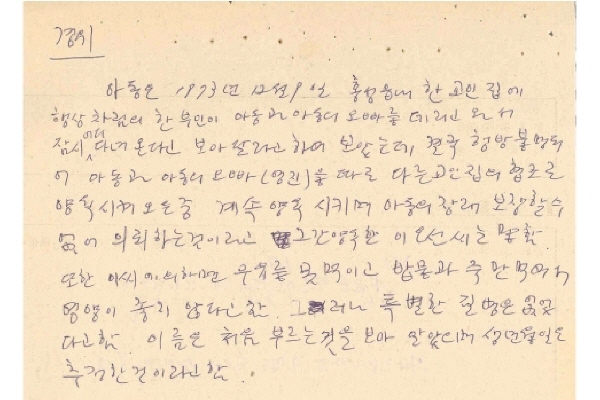 경위
아동은 1973년 12월 9일 홍성읍내 한 교인 집에
행상 차림의 한 부인이 아동과 아동의 오빠를 데리고 와서
잠시 어디 다녀온다고 보아 달라고 하여 보았는데 결국 행방불명되
어 아동과 아동의 오빠(영진)을 따로 다른 교인집의 협조로
양육시켜 오든중 계속 양육 시키며 아동의 장래 보장할수
없어 의뢰하는것이라고 그간 양육한 이 씨는 말함.
또한 이씨에 의하면 우유를 못먹이고 밥물과 죽만 먹여서
영양이 좋지 않다고 함. 그러나 특별한 질병은 없었
다고함. 이름은 처음 부르는것을 보아 알았으며 생년월일은
추정한것이라고함.